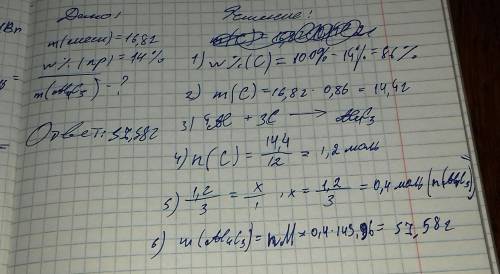 Дано:
m(смеси) = 16,8г
w%(пр) = 14%
m(Al₄C₃) - ?
Ответ: 57,58г
Решение:
1) w%(C) = 100% - 14% = 86%
2) m(C) = 16,8г · 0,86 = 14,4г
3) 4Al + 3C → Al₄C₃
4) n(C) = 14,4/12 = 1,2 моль
5) 1,2/3 = x/1, x = 1,2/3 = 0,4 моль (n(Al₄C₃)
6) m(Al₄C₃) = nM × 0,4 · 143,96 = 57,58г